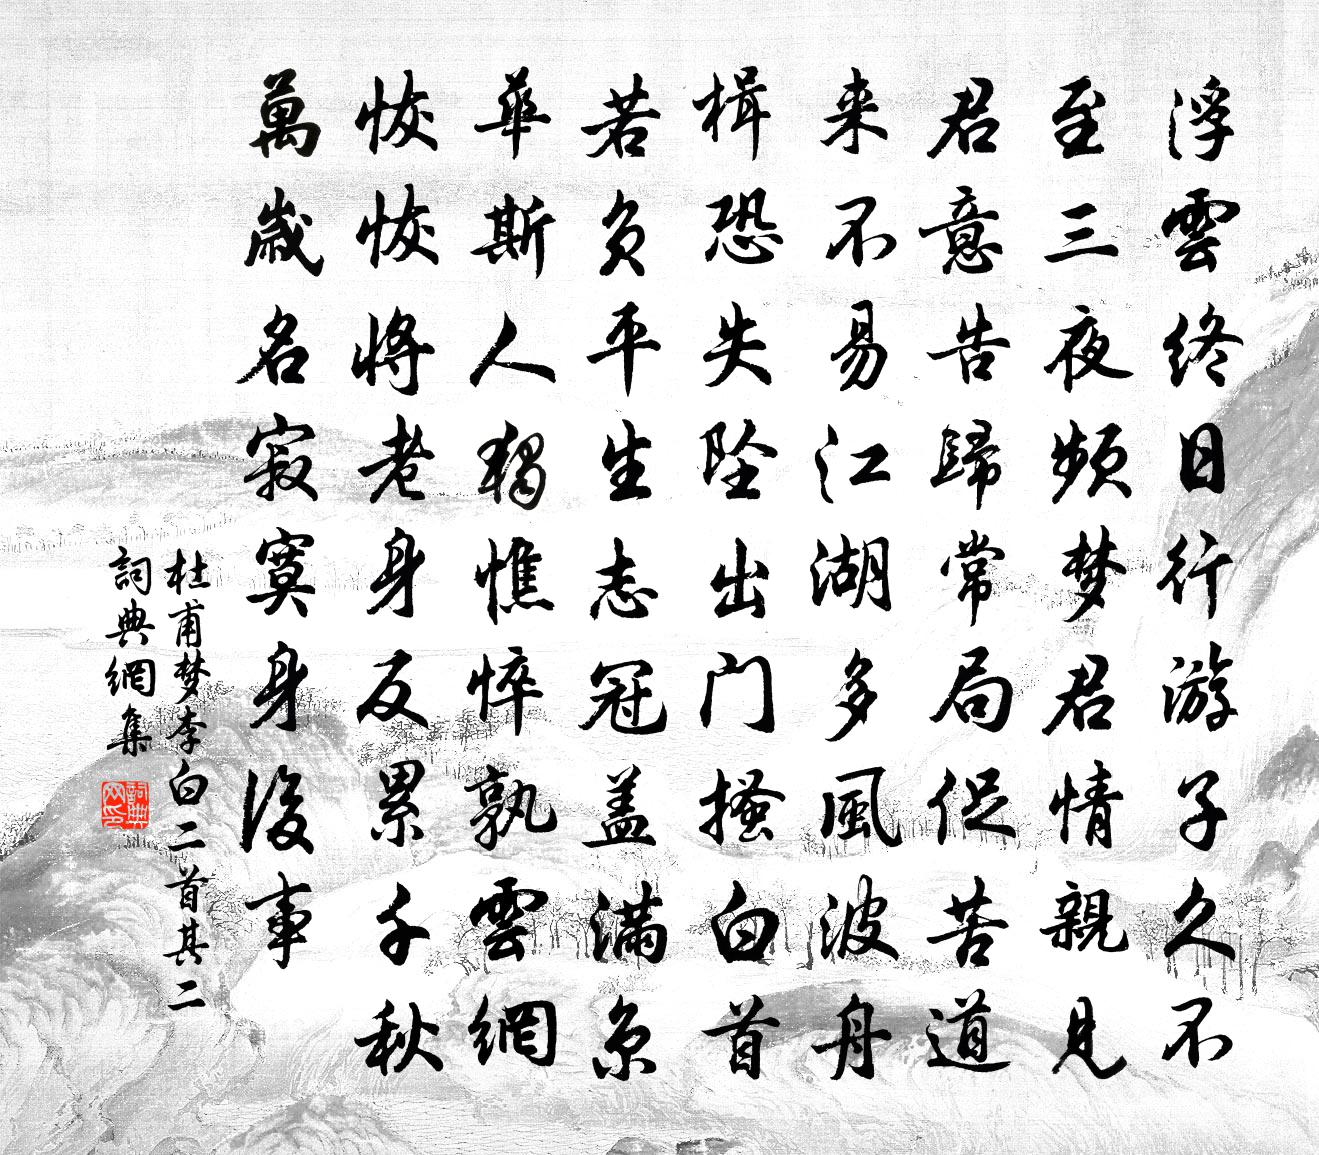 浮雲終日行游子久不
至三夜频梦君情親見
君意告歸常局促苦道
来不易江湖多風波舟
楫恐失坠出门搔白首
若负平生志冠盖满京
華斯人獨憔悴孰雲網
恢恢将老身反累千秋
萬歲名寂寞身後事
杜甫梦李白二首其二
詞典網集
詞典
网印